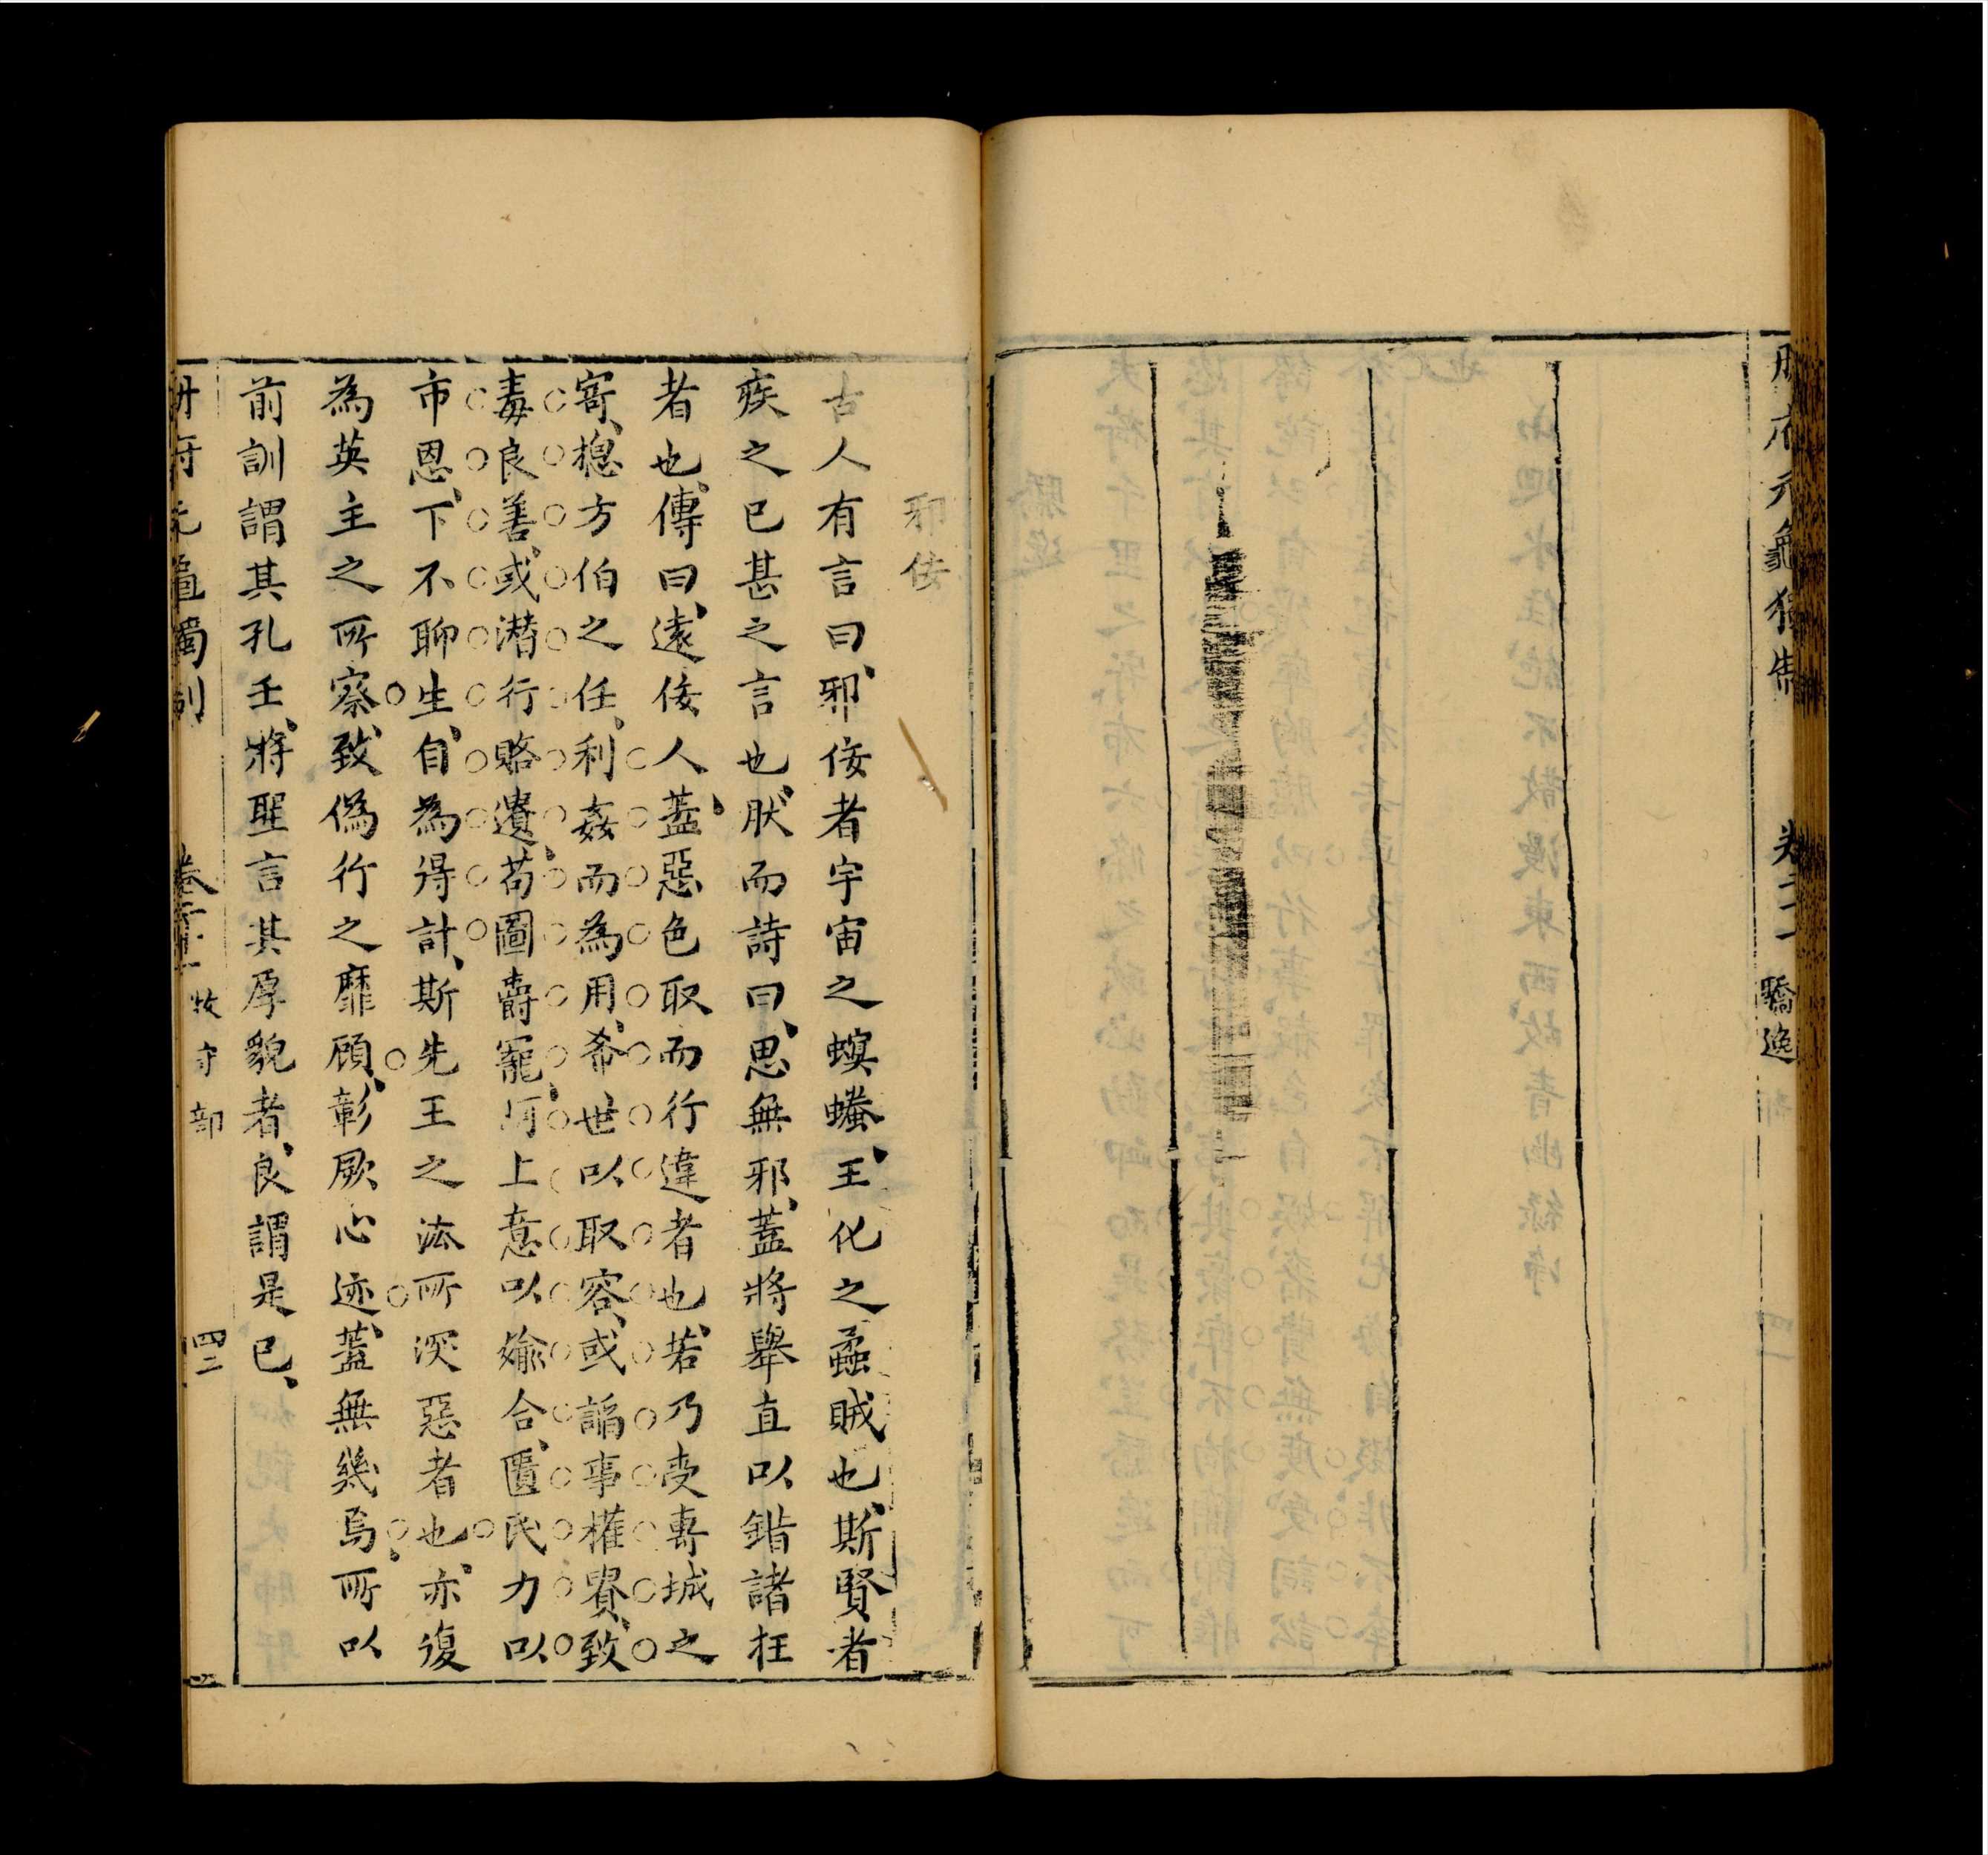 冊府元龜獨制
卷二十一
驕逸
邪佞
古人有言曰邪佞者宇宙之螟螣王化之蟊賊也斯賢者
疾之已甚之言也肰而詩曰思無邪蓋將舉直以錯諸枉
者也傳曰遠佞人蓋惡色取而行違者也若乃受專城之
寄總方伯之任利姦而為用希世以取容或謟事權貴致
毒良善或潛行賂遺苟圖爵寵阿上意以婾合匱民力以
市恩下不聊生自為得計斯先王之法所深惡者也亦復
為英主之所察致偽行之靡顧彰厥心迹蓋無幾焉所以
前訓謂其孔壬將聖言其厚貌者良謂是已
冊府元龜獨制
卷二十一
牧守部
四二